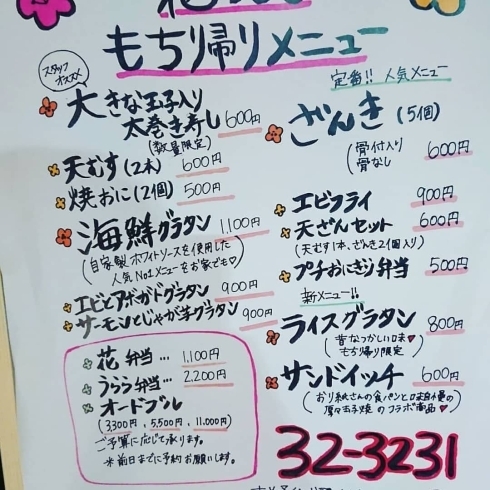 もち帰りメニュー
スタッフ
オススメ
大きな玉子入り
太巻き寿し 600円
(数量限定)
天むす(2本) 600円
焼おに(2個) 500円
海鮮グラタン 1,100円
(自家製ホワイトソースを使用した
人気No1メニューをお家でも♥)
エビとアボカドグラタン 900円
サーモンとじゃが芋グラタン 900円
花弁当… 1,100円
うらら弁当… 2,200円
オードブル
(3300円, 5,500円, 11,000円)
ご予算に応じて承ります。
※前日までに予約お願いします。
定番!! 人気メニュー
ざんき(5個)
(骨付入り
骨なし) 600円
エビフライ 900円
天ざんセット 600円
(天むす1本、ざんき2個入り)
プチおにぎり弁当 500円
新メニュー!!
ライスグラタン 800円
(昔なつかしい味♥
もち帰り限定)
サンドイッチ 600円
(おり紙さんの食パンと
厚々玉子焼のコラボ商品♥)
32-3231